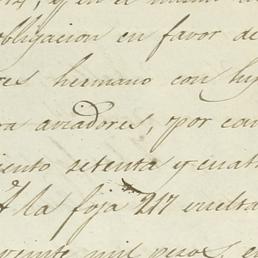 y en el mismo
obligacion en favor de
res hermano con hy
ra aviadores, por can
iento setenta y cuat
A la foja 217 vuelta
veinte mil pesos, e